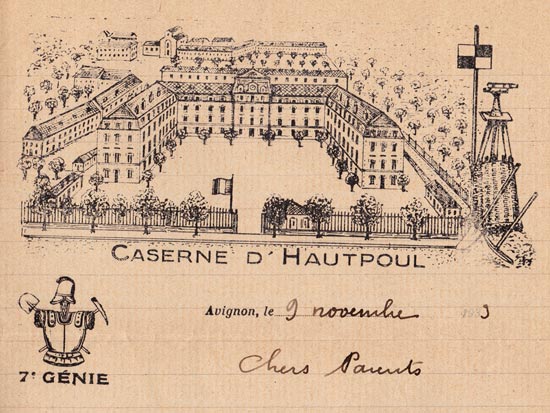 CASERNE D'HAUTPOUL
Avignon, le 9 novembre 3
7e GÉNIE
Chers Parents